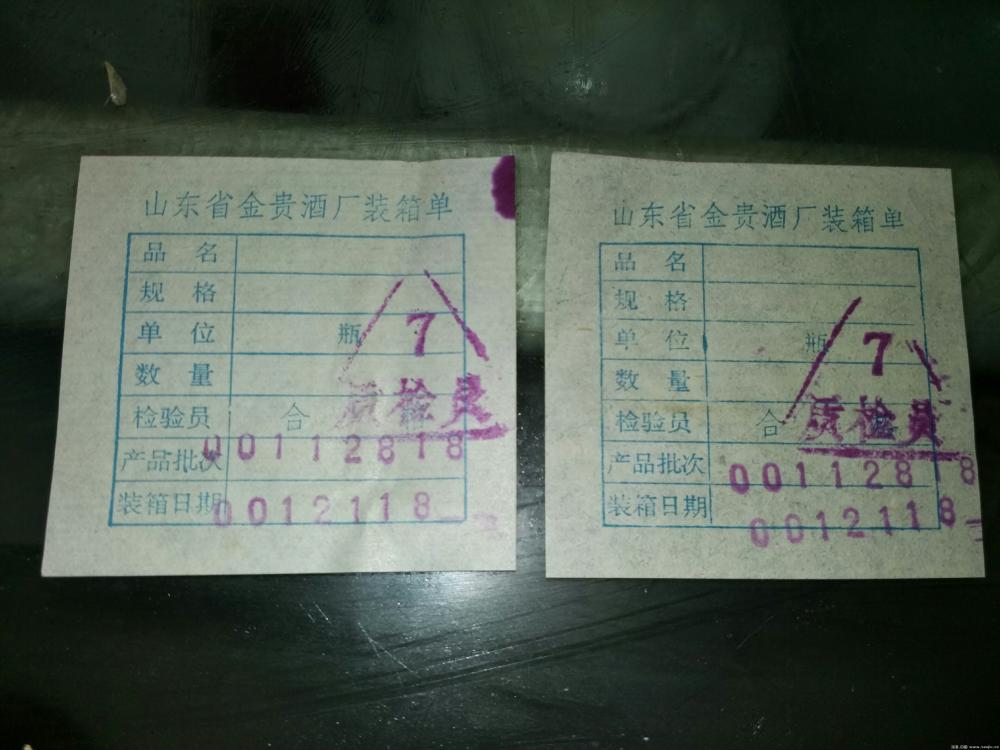 山东省金贵酒厂装箱单
品名
规格
单位 瓶
数量
7
质检员
检验员 合格
产品批次 00112818
装箱日期 0012118
山东省金贵酒厂装箱单
品名
规格
单位 瓶
数量
7
质检员
检验员 合格
产品批次 00112818
装箱日期 0012118